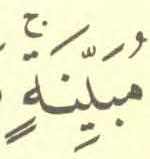 مُبَيِّنَةٍۚ